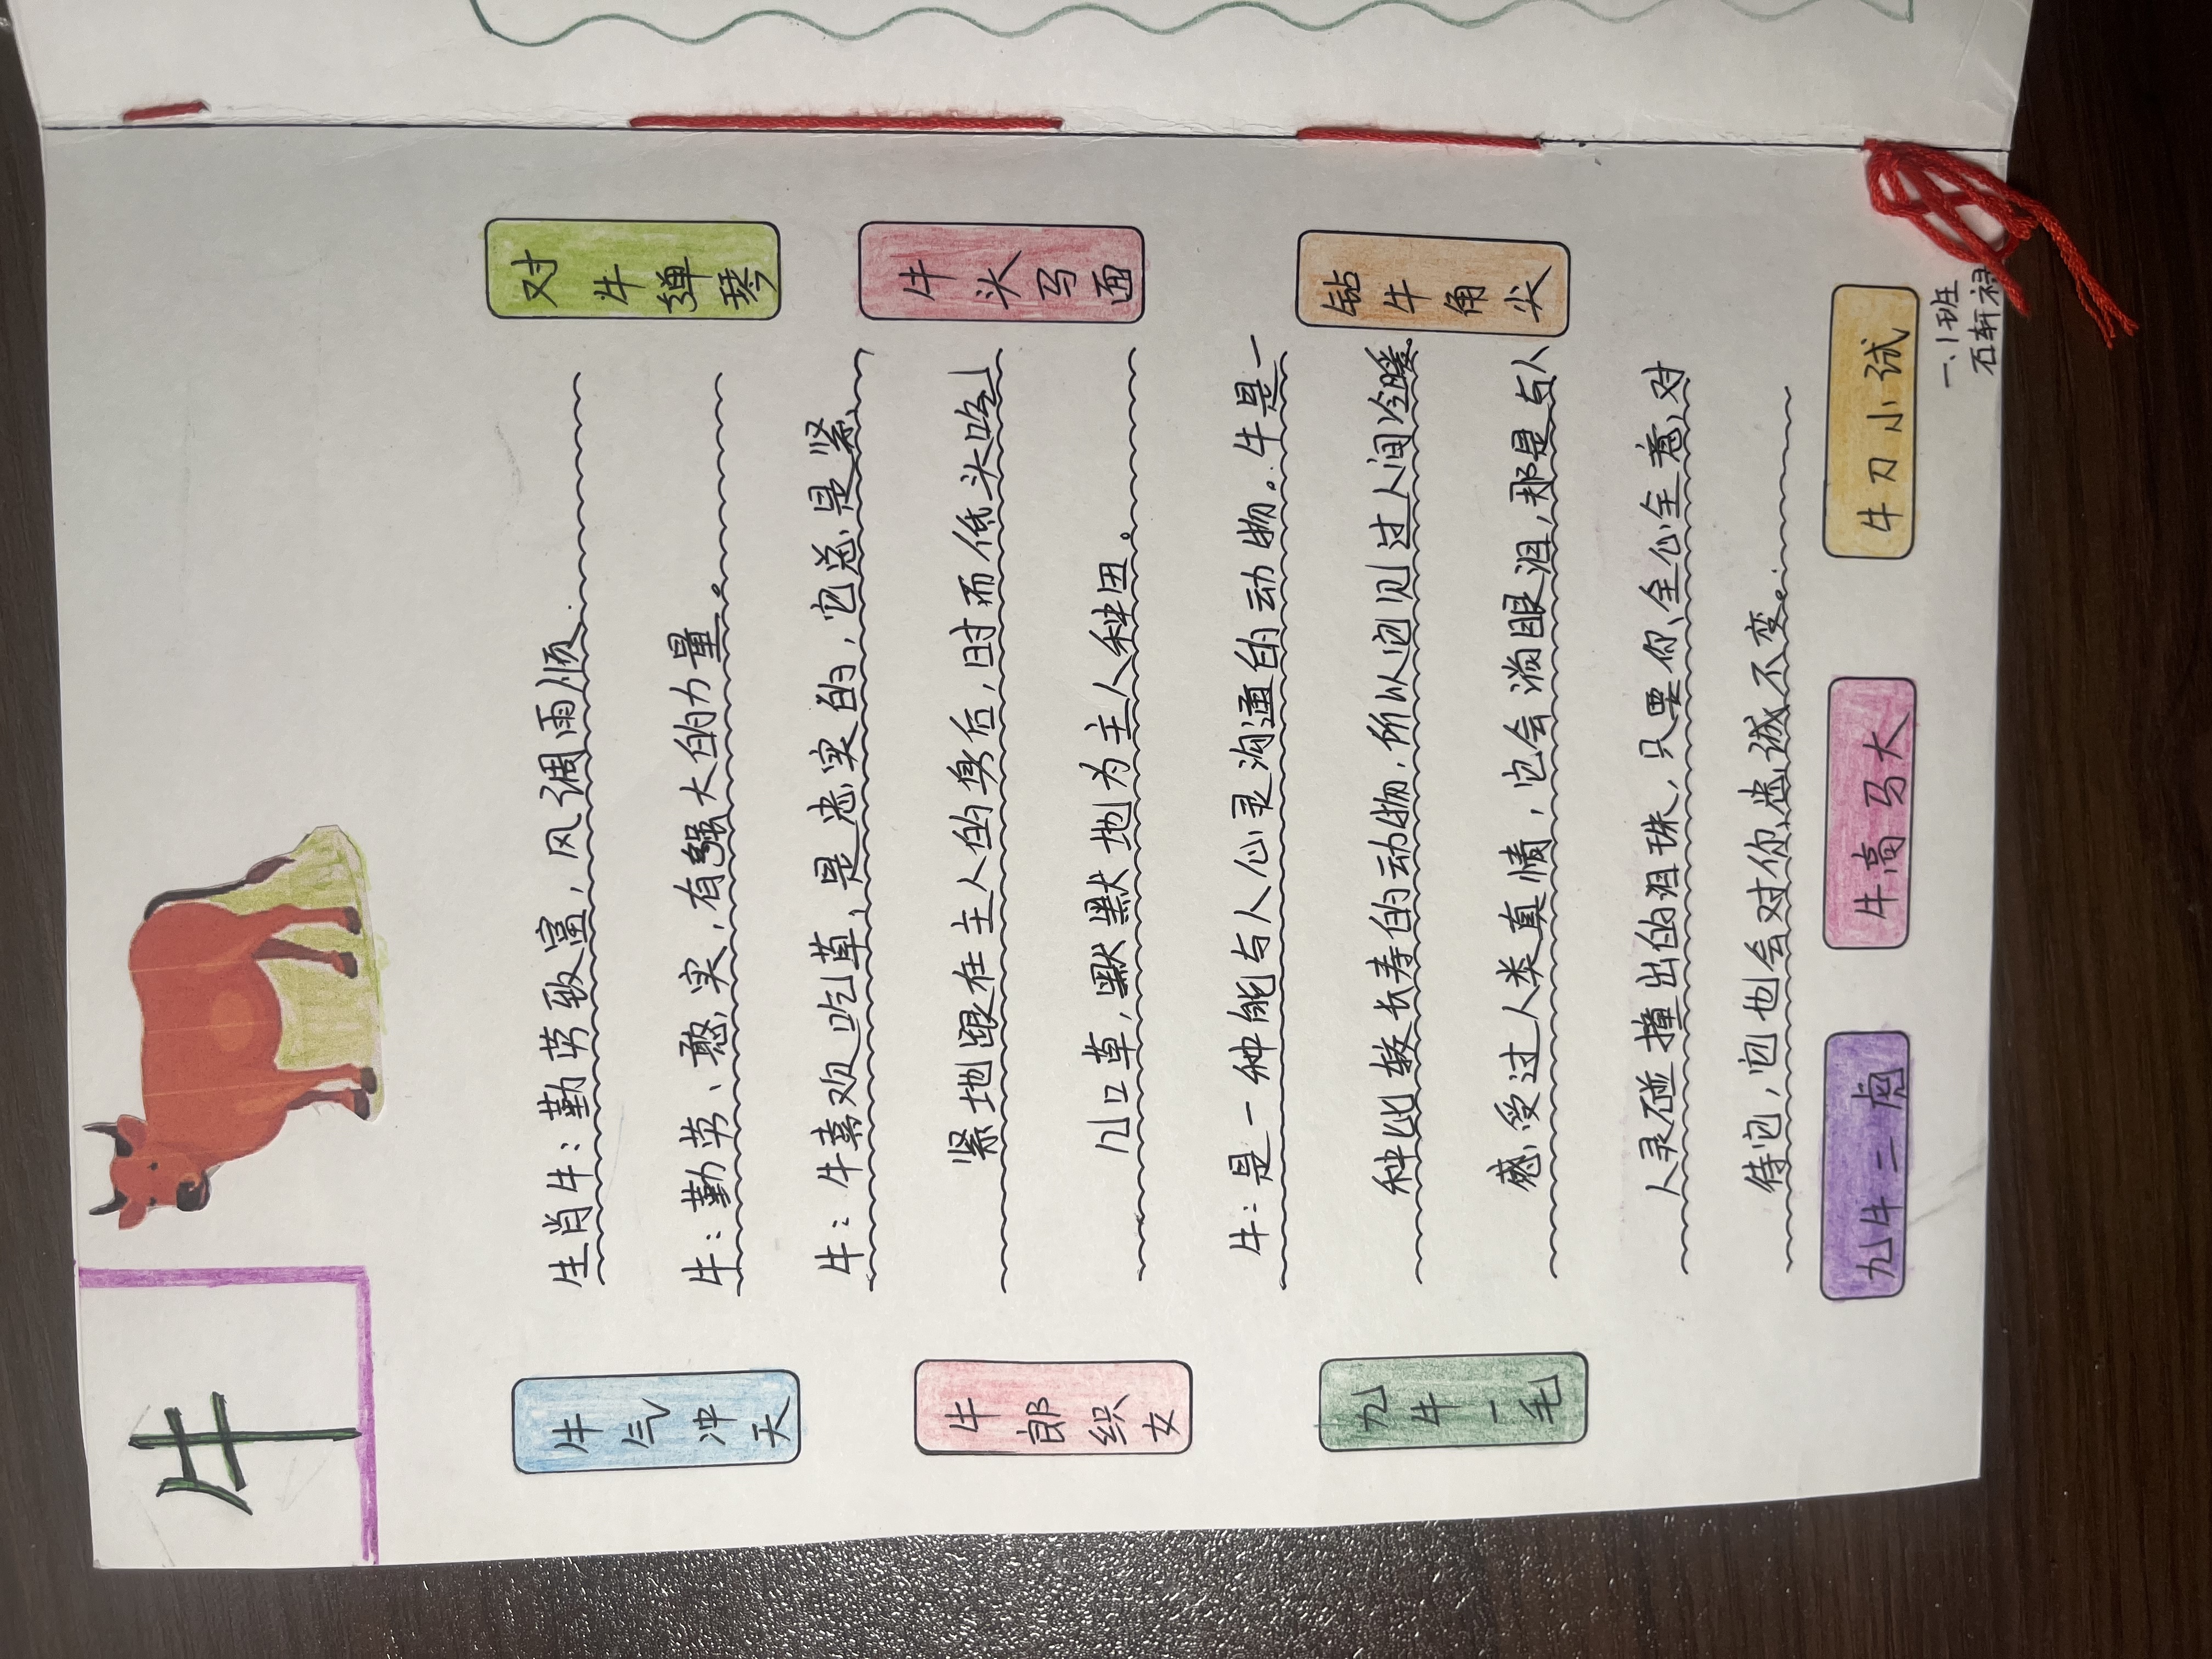 牛
生肖牛：勤劳致富，风调雨顺.
牛：勤劳、憨实，有强大的力量。
牛：牛喜欢吃草，是忠实的，它总是紧
紧地跟在主人的身后，时而低头吃
几口草，默默地为主人种田。
牛：是一种能与人心灵沟通的动物。牛是一
种比较长寿的动物，所以它见过人间冷暖。
感受过人类真情，它会淌眼泪，那是与人
人灵碰撞出的泪珠，只要你全心全意对
待它，它也会对你忠诚不变。
牛气冲天
牛郎织女
九牛一毛
对牛弹琴
牛头马面
钻牛角尖
九牛二虎
牛高马大
牛刀小试
一、1班
石轩禄